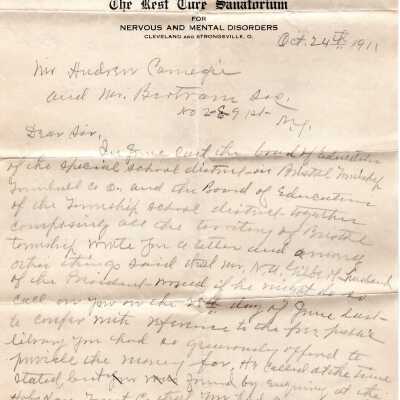 The Rest Cure Sanatorium
FOR
NERVOUS AND MENTAL DISORDERS
CLEVELAND AND STRONGSVILLE, O.
Oct. 24th 1911
Mr Andrew Carnegie
and Mr. Bertram Sec.
No 2 E 91 St.
N.Y.
Dear Sir,
In June last the board of Education
of the special school district in Bristol Township
Trumbull Co O. and the Board of Education
of the Township school district together
composing all the territory of Bristol
township wrote you a letter and among
other things said that Mr. N.A. Gilbert husband
of the President would if he might do so
call on you on the 28th day of June last
to confer with reference to the free public
library you had so generously offered to
provide the money for. He called at the time
stated but found by enquiring at the